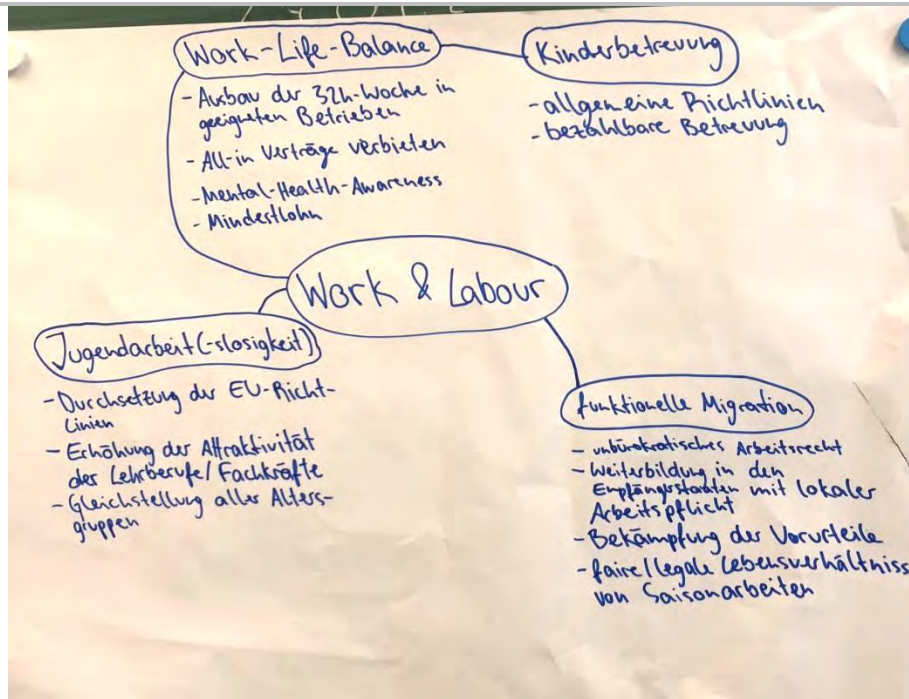 Work-Life-Balance
- Ausbau der 32h-Woche in
geeigneten Betrieben
- All-in Verträge verbieten
- Mental-Health-Awareness
- Mindestlohn
Kinderbetreuung
- allgemeine Richtlinien
- bezahlbare Betreuung
Work & Labour
Jugendarbeit(-slosigkeit)
- Durchsetzung der EU-Richt-
linien
- Erhöhung der Attraktivität
der Lehrberufe/Fachkräfte
- Gleichstellung aller Alters-
gruppen
funktionelle Migration
- unbürokratisches Arbeitsrecht
- Weiterbildung in den
Empfängerstaaten mit lokaler
Arbeitspflicht
- Bekämpfung der Vorurteile
- faire/legale Lebensverhältniss
von Saisonarbeiten